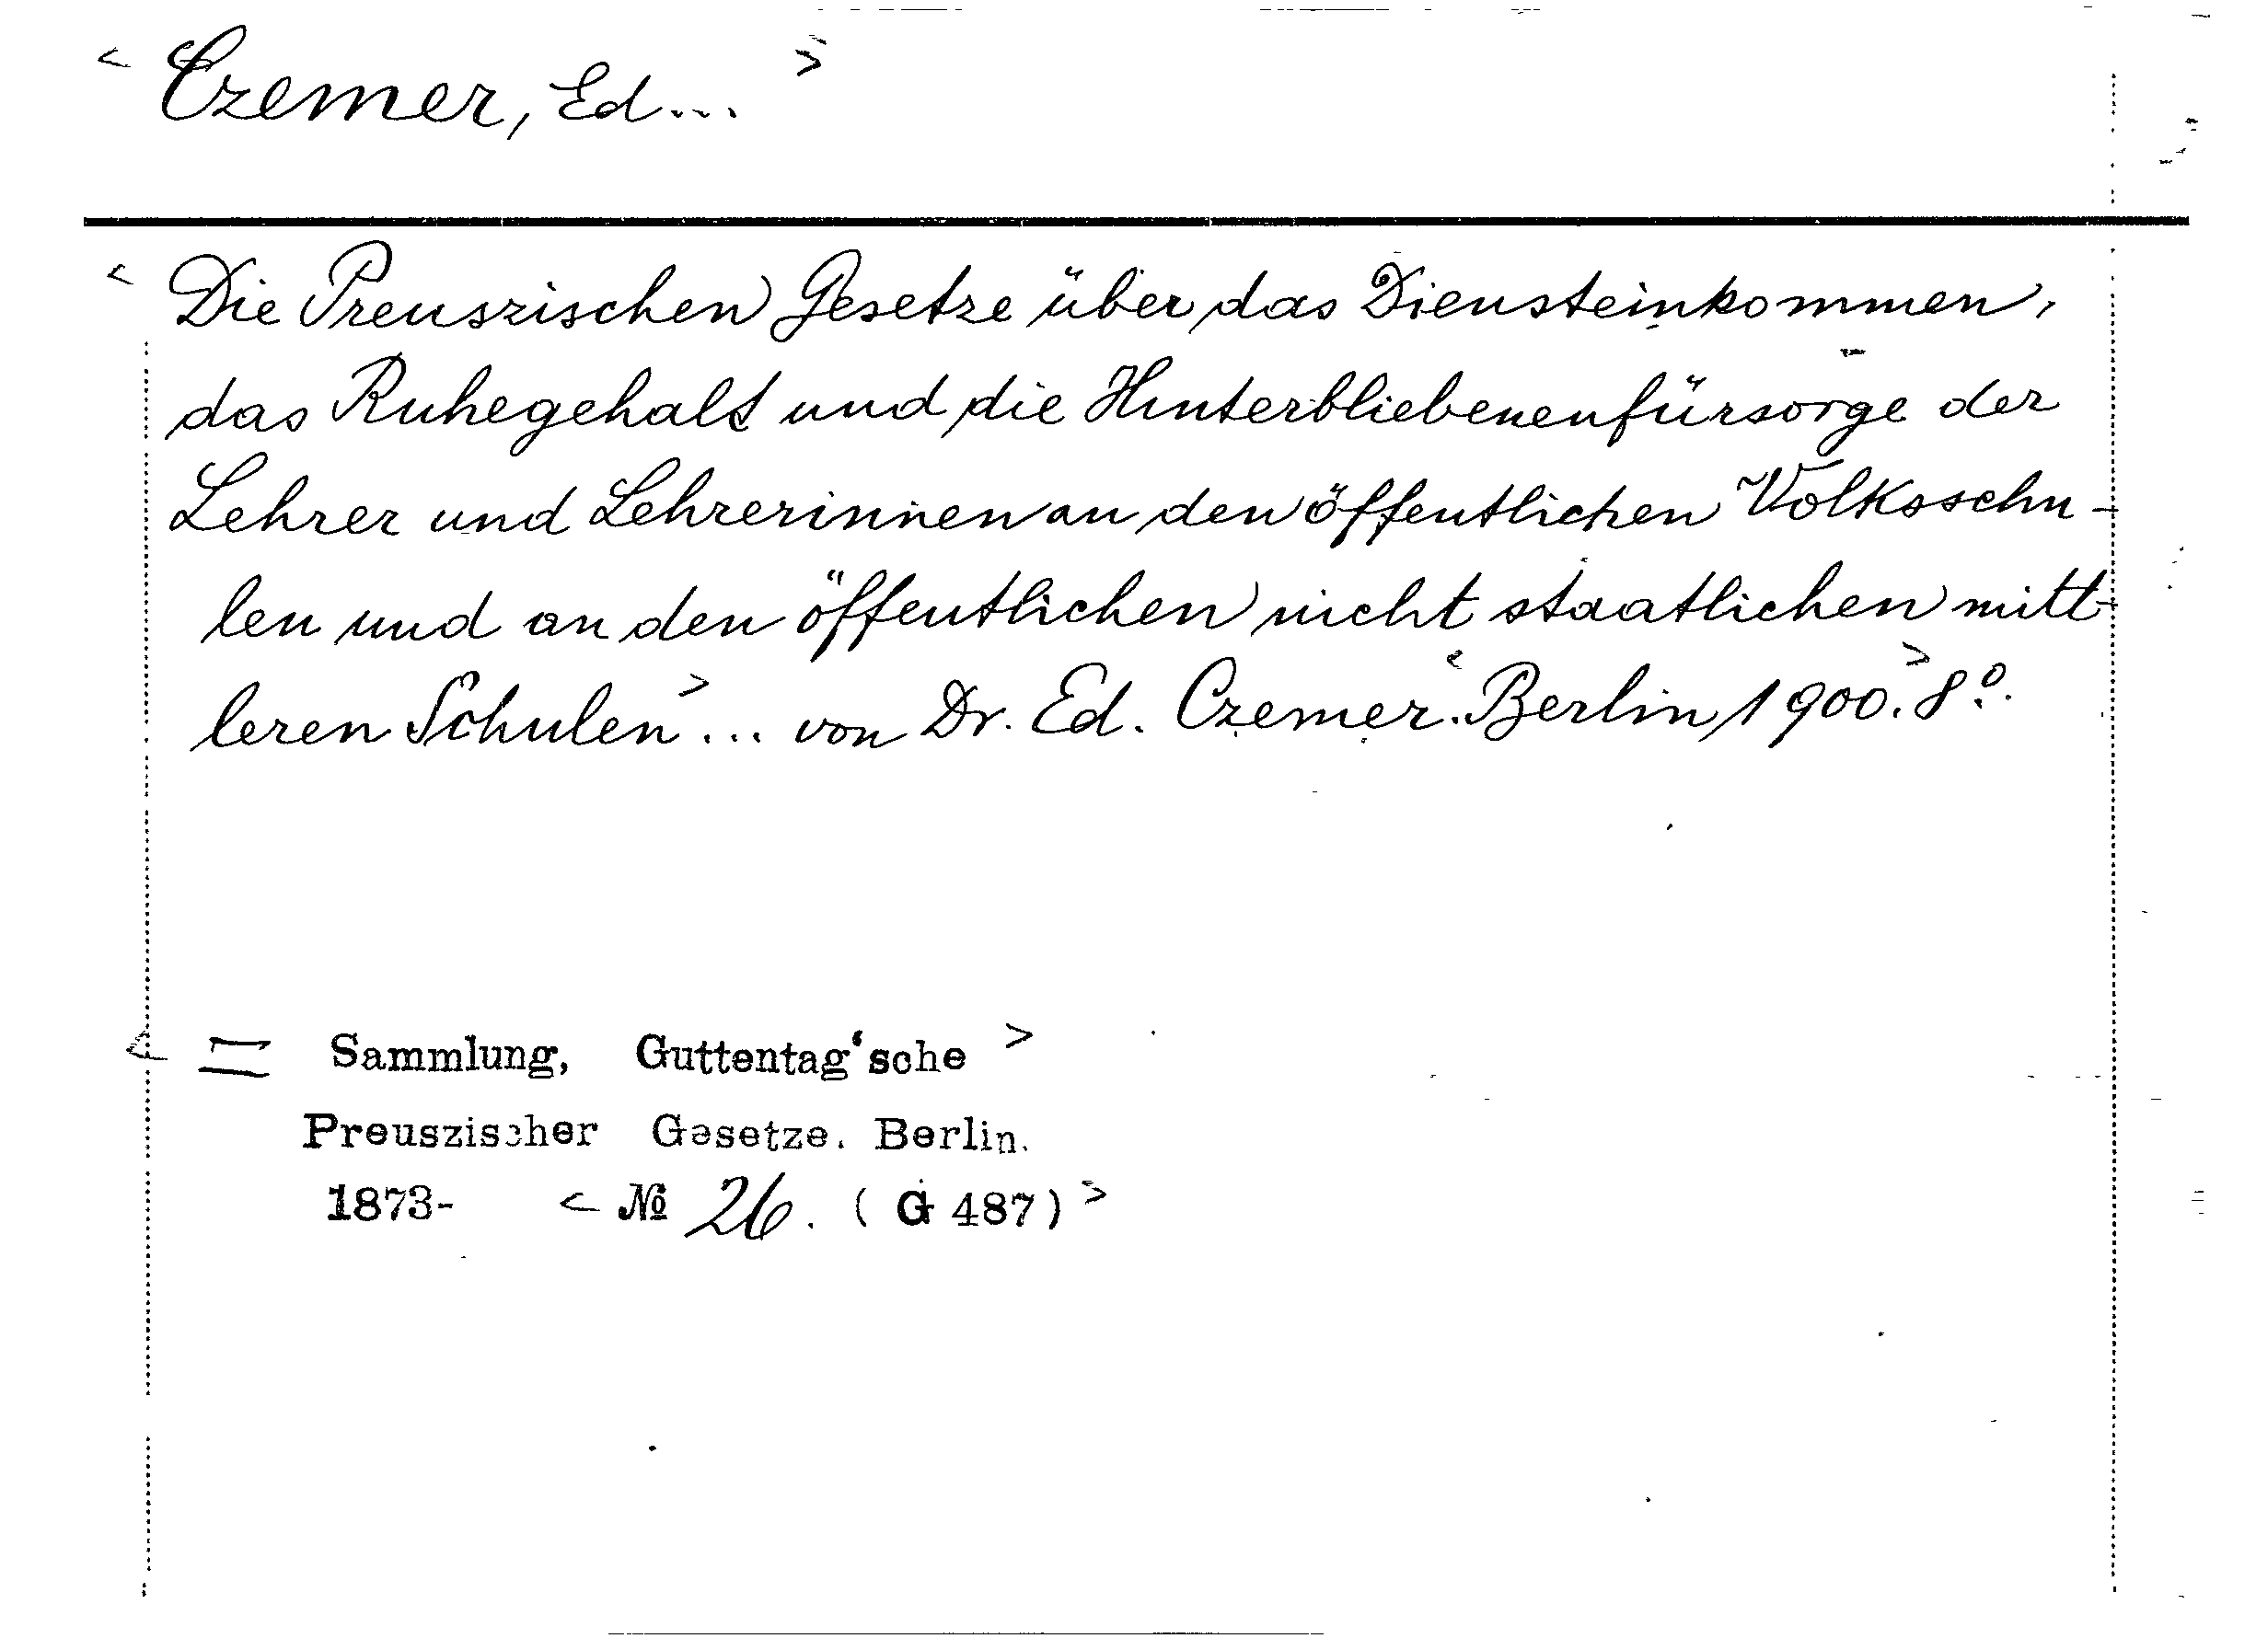 < Czemer, Ed... >
< Die Preuszischen Gesetze über das Diensteinkommen,
das Ruhegehalt und die Hinterbliebenenfürsorge der
Lehrer und Lehrerinnen an den öffentlichen Volksschu-
len und an den öffentlichen nicht staatlichen mitt-
leren Schulen > ... von Dr. Ed. Czemer. < Berlin 1900. > 8°.
< = Sammlung, Guttentag'sche >
Preuszischer Gesetze. Berlin.
1873- < № 26. ( G 487) >